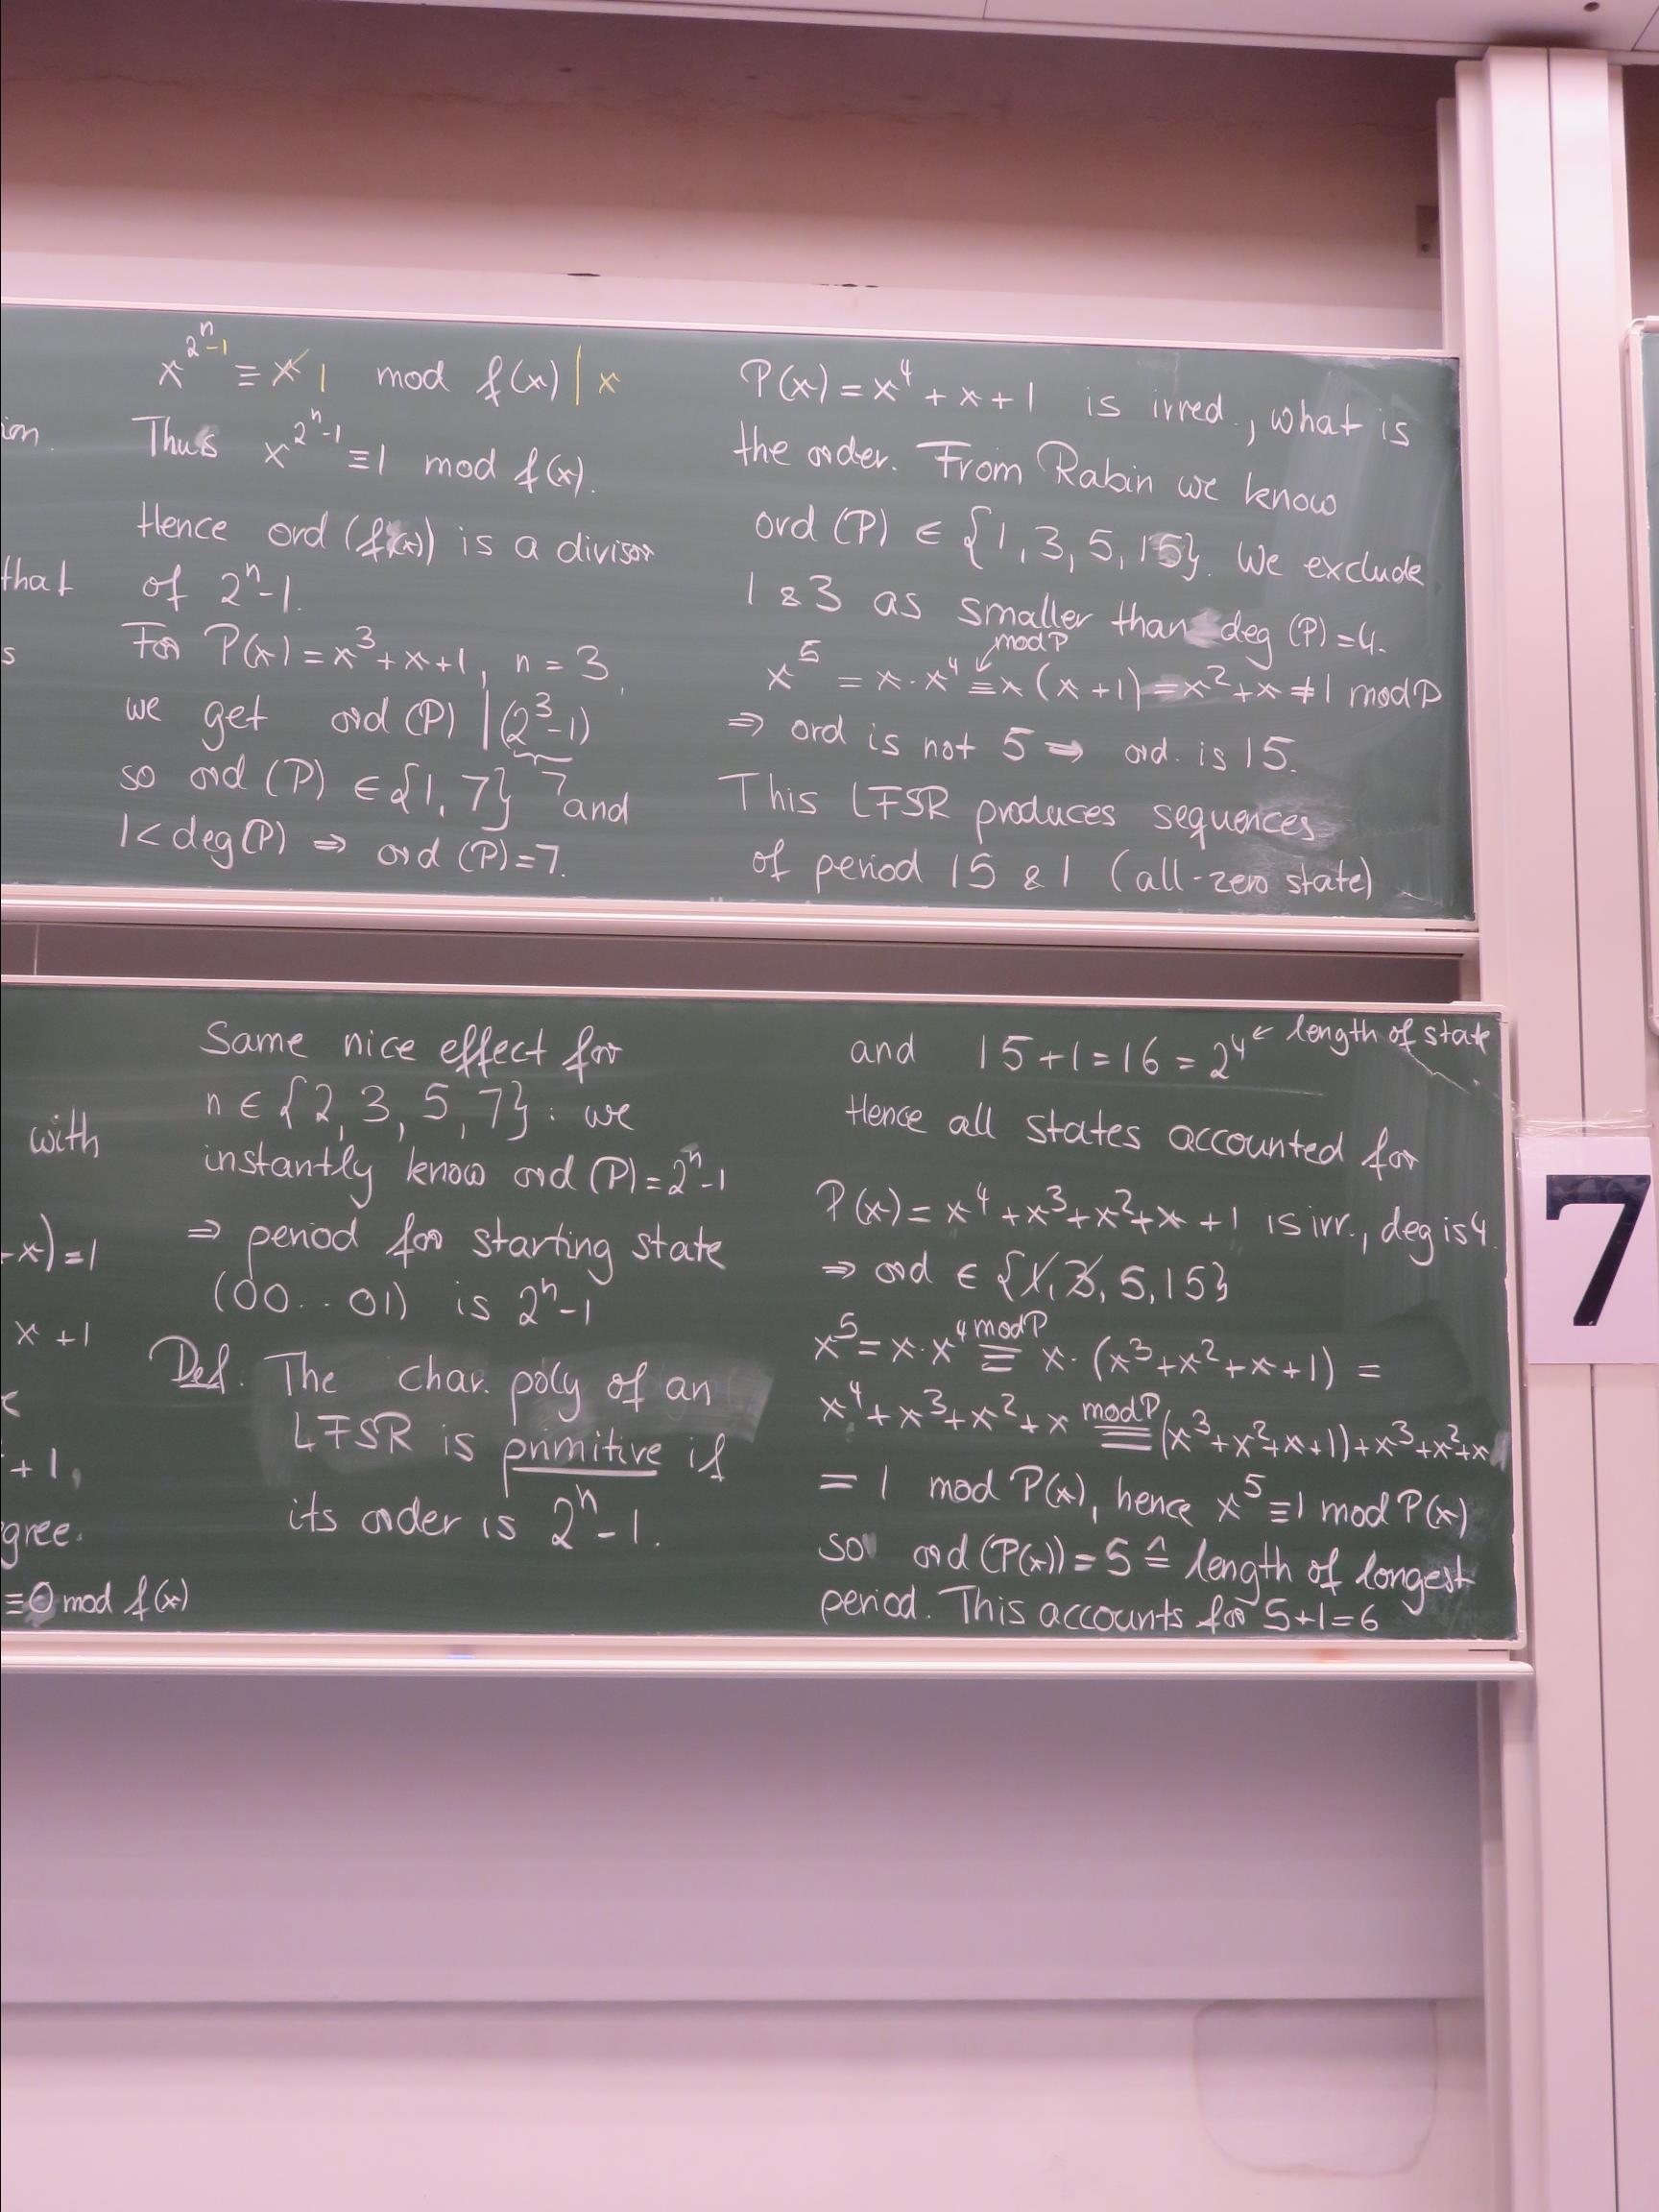 x^{2^n-1} ≡ x 1 mod f(x) | x
ion. Thus x^{2^n-1} ≡ 1 mod f(x).
Hence ord (f(x)) is a divisor
that of 2^n-1.
s For P(x) = x^3+x+1, n = 3,
we get ord (P) | (2^3-1)
so ord (P) ∈ {1, 7} 7 and
1 < deg(P) ⇒ ord (P)=7.
P(x) = x^4 + x + 1 is irred., what is
the order. From Rabin we know
ord (P) ∈ {1, 3, 5, 15}. We exclude
1 & 3 as smaller than deg (P) = 4.
mod P
x^5 = x·x^4 ≡ x (x+1) = x^2+x ≠ 1 mod P
⇒ ord is not 5 ⇒ ord. is 15.
This LFSR produces sequences
of period 15 & 1 (all-zero state)
with
-x) = 1
x + 1
+ 1,
gree.
≡ 0 mod f(x)
Same nice effect for
n ∈ {2, 3, 5, 7} : we
instantly know ord (P) = 2^n-1
⇒ period for starting state
(00...01) is 2^n-1
Def. The char. poly of an
LFSR is primitive if
its order is 2^n-1.
and 15+1 = 16 = 2^4 ← length of state
Hence all states accounted for
P(x) = x^4+x^3+x^2+x+1 is irr., deg is 4.
⇒ ord ∈ {1, 3, 5, 15}
x^5 = x·x^4 ≡ mod P x·(x^3+x^2+x+1) =
x^4+x^3+x^2+x ≡ mod P (x^3+x^2+x+1)+x^3+x^2+x
= 1 mod P(x), hence x^5 ≡ 1 mod P(x)
so ord (P(x)) = 5 ≙ length of longest
period. This accounts for 5+1=6
7